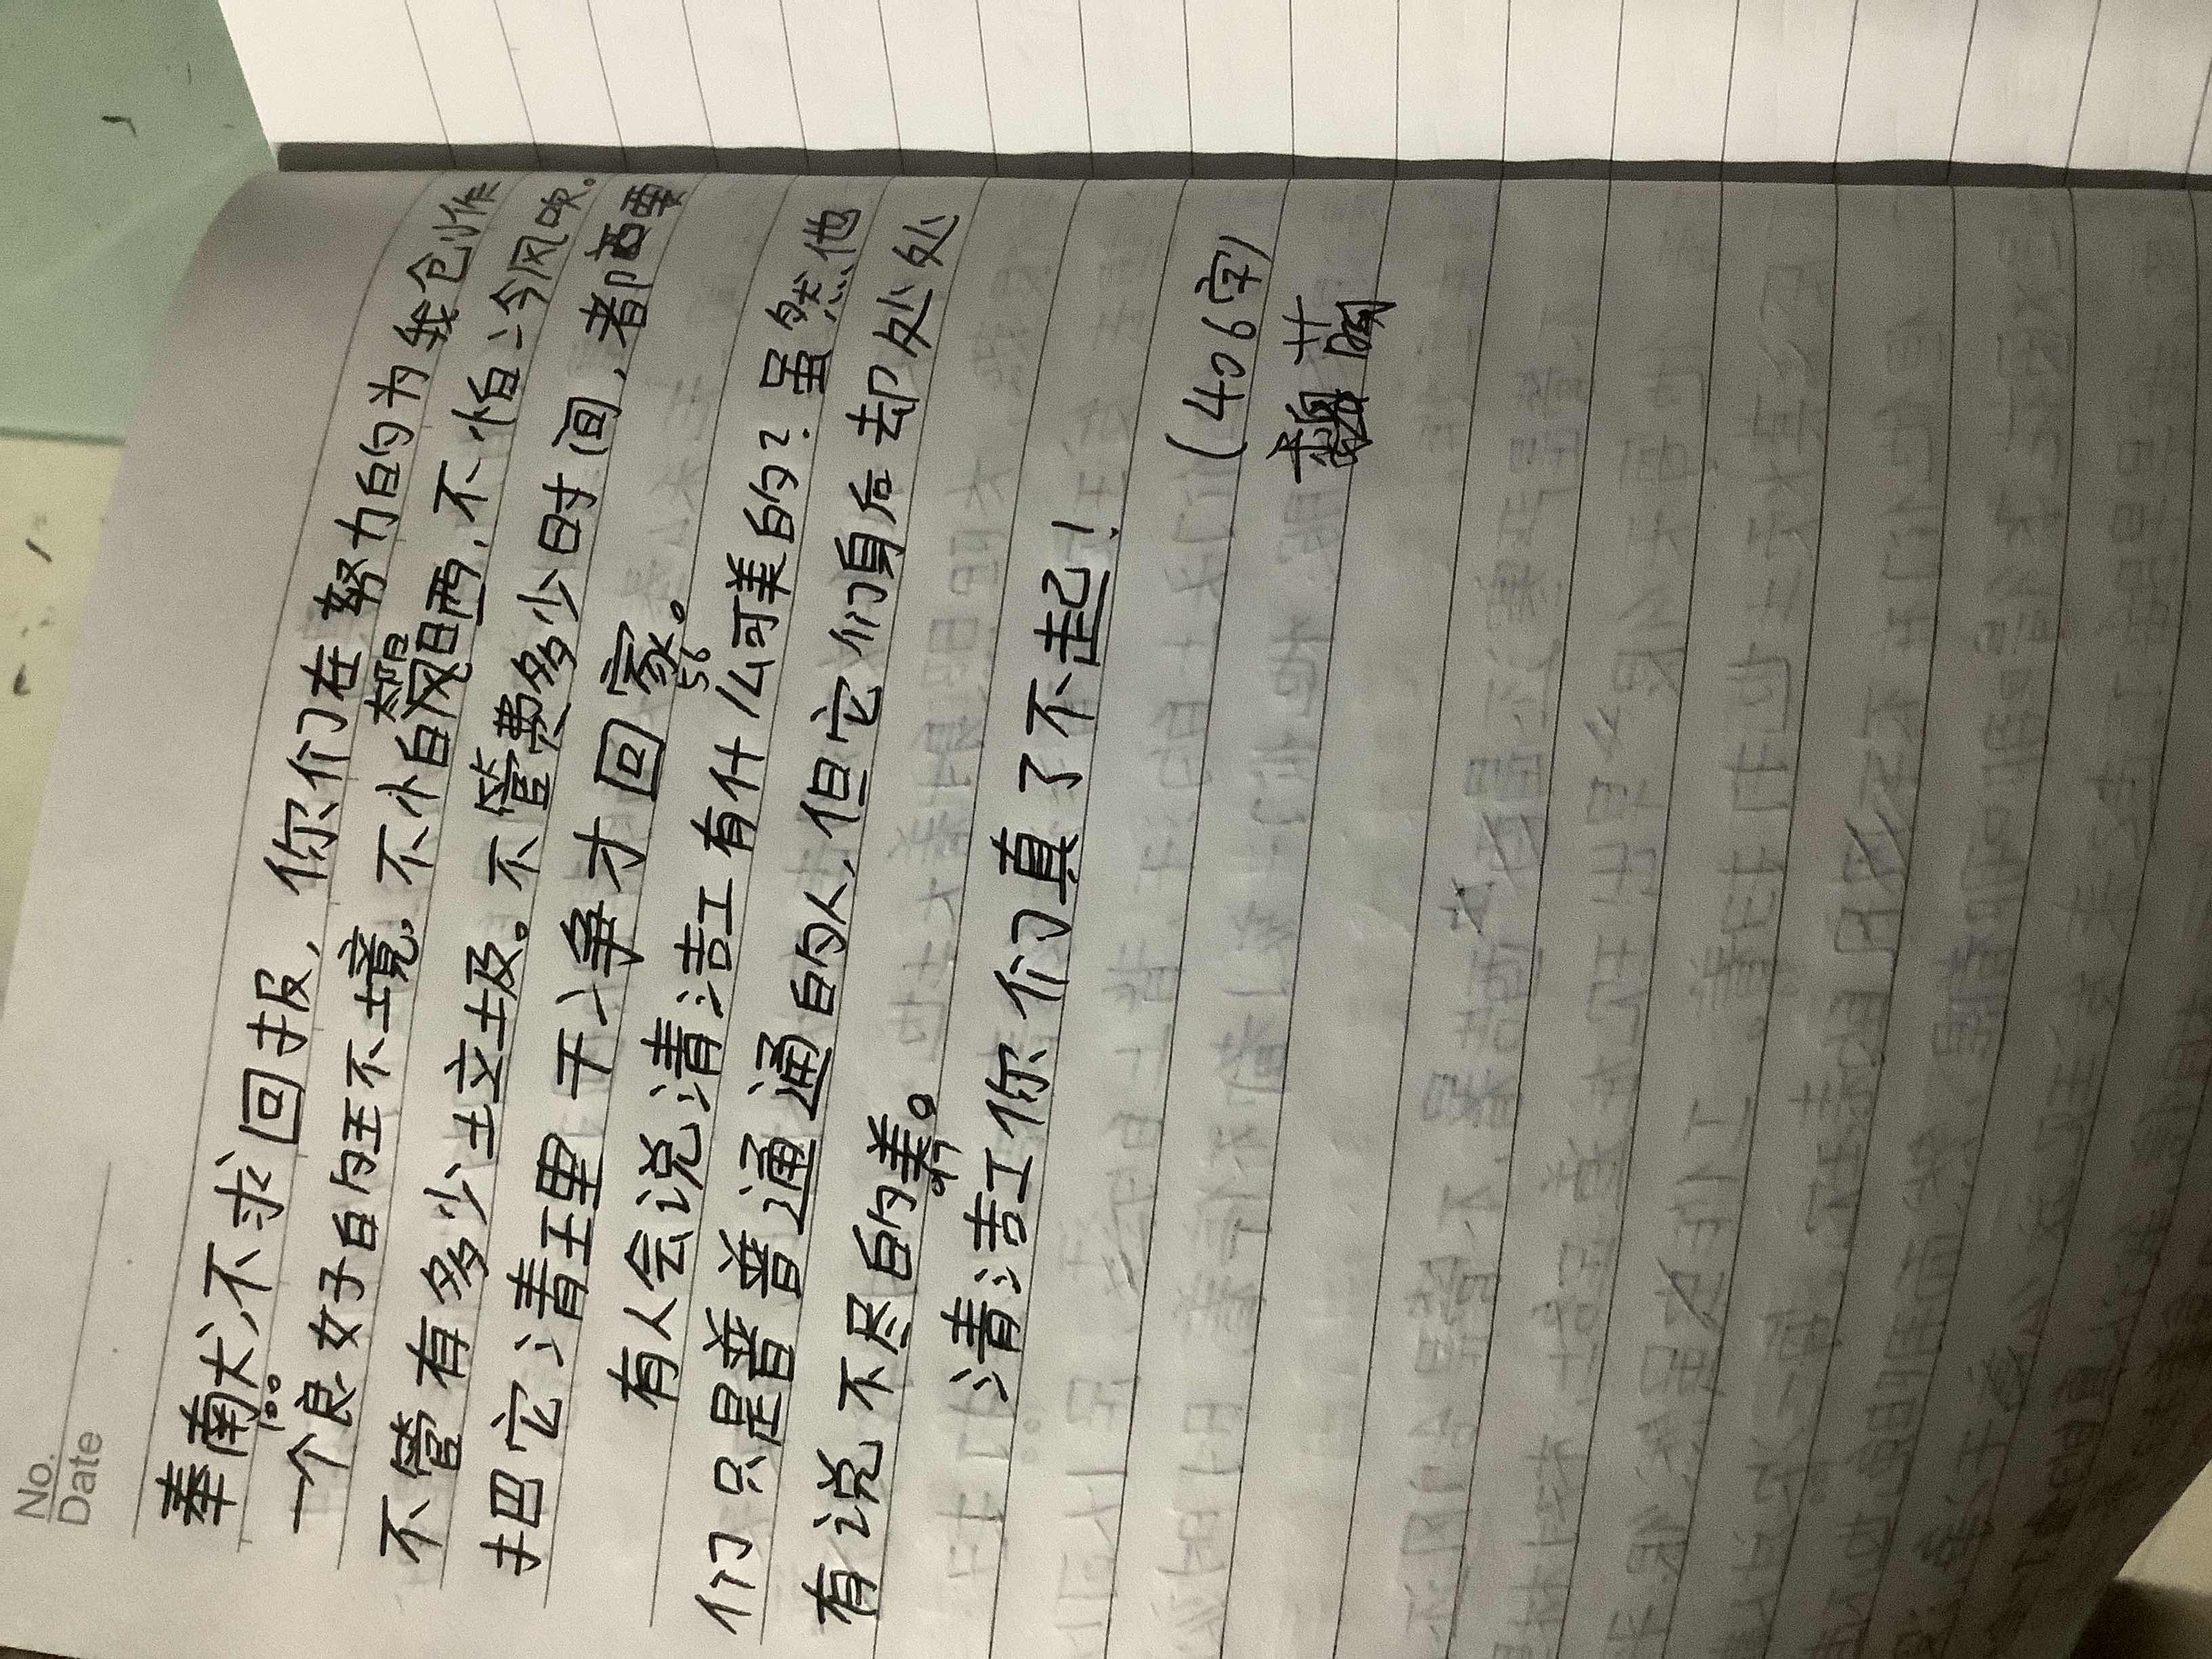 No.
Date
奉献大,不求回报,你们在努力的为我创作
100
一个良好的环境。不怕太阳晒,不怕冷风吹。
不管有多少垃圾。不管费多少时间,都要
把它清理干净才回家。
56
有人会说清洁工有什么可美的?虽然他
们只是普普通通的人,但它们身后却处处
有说不尽的美。
49
清洁工你们真了不起!
(406字)